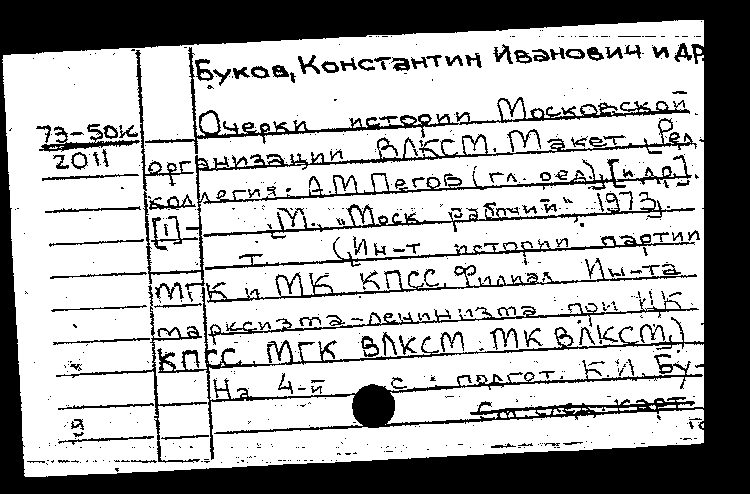 Буков, Константин Иванович и др
Очерки истории Московской
73-50к
2011
организации ВЛКСМ. Макет. [Ред.
коллегия: А.М. Пегов (гл. ред), [и др].
[1]- ,[М., "Моск. рабочий", 1973].
т. (Ин-т истории партии
МГК и МК КПСС. Филиал Ин-та
марксизма-ленинизма при ЦК
КПСС. МГК ВЛКСМ. МК ВЛКСМ.)
На 4-й с.: подгот. К.И. Бу-
См. след. карт.
9